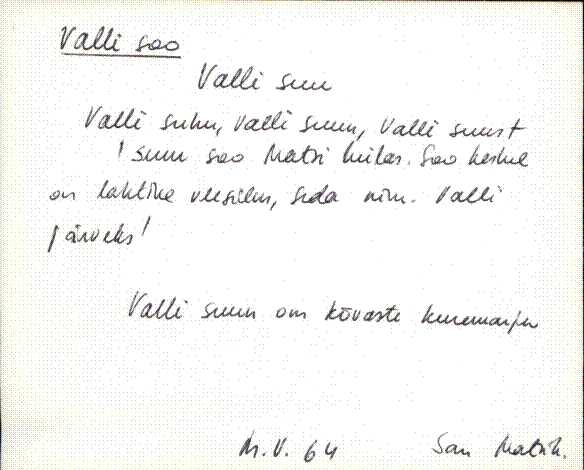 Valli soo
Valli suu
Valli suhu, Valli suun, Valli suust
! suur soo Matsi külas. Soo keskel
on lahtine veesilm, seda nim. Valli
järveks!
Valli suun om kõvaste kuremarju
M.V. 64 San Matsik.